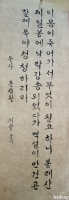 이 몸이 죽어 가서 무엇이 될고 하니 봉래산
제일봉에 낙락장송 되었다가 백설이 만건곤
할 제 독야청청하리라